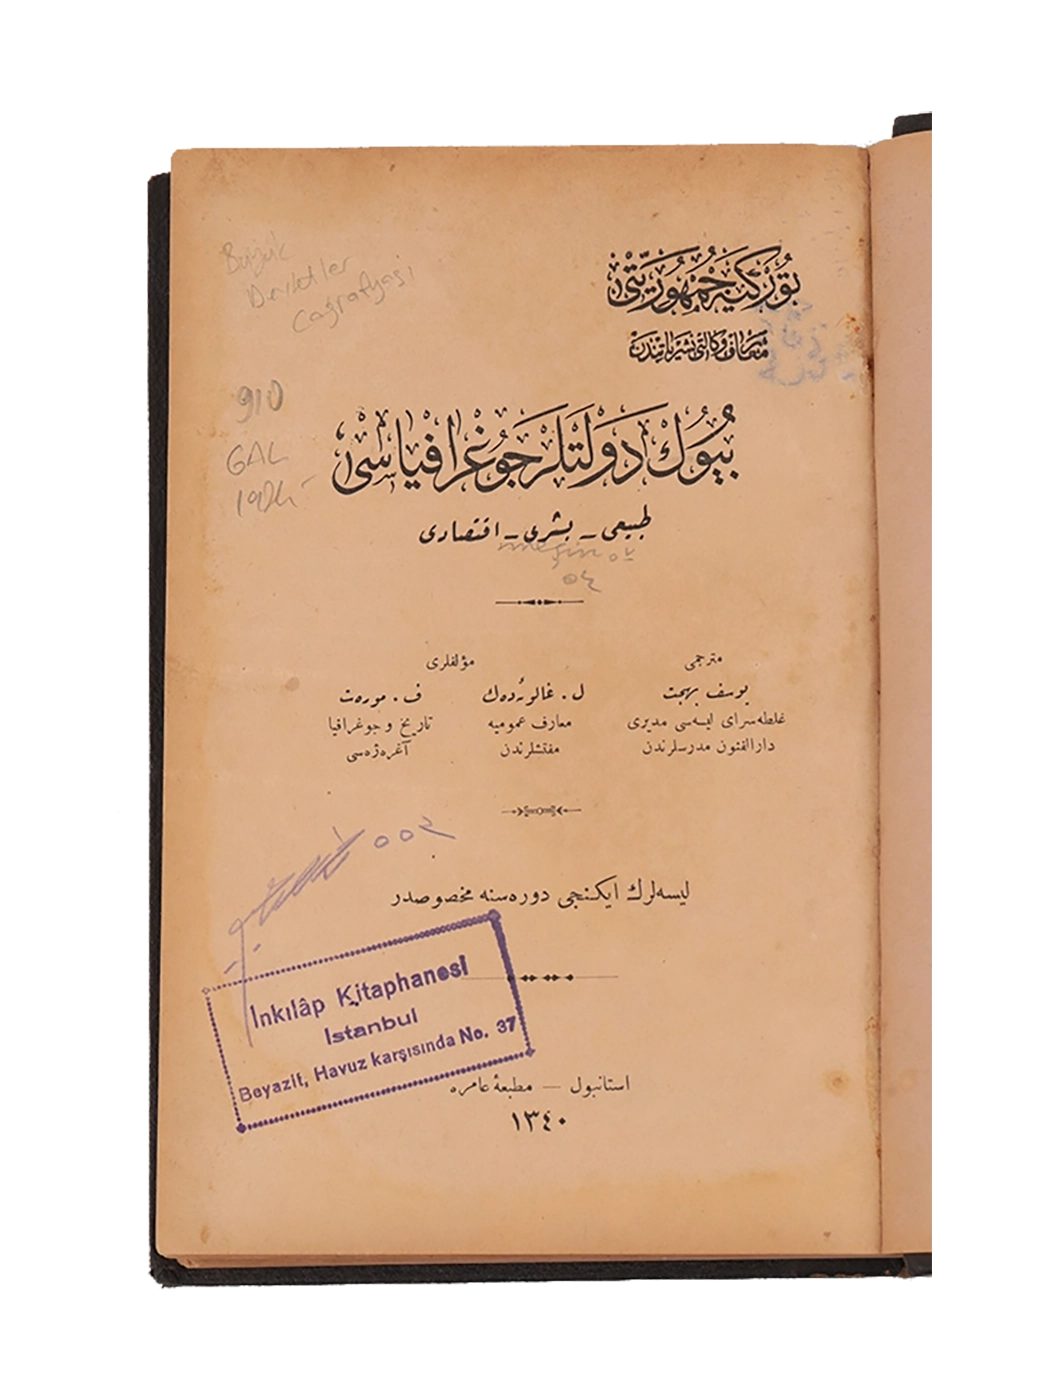 توركيه جمهوريتى
معارف وكالتى نشرياتندن
Büyük
Devletler
Coğrafyası
910
GAL
بيوك دولتلر جوغرافياسى
طبيعى ـ بشرى ـ اقتصادى
مترجمى
يوسف بهجت
غلطه سراى ليسه سى مديرى
دارالفنون مدرسلرندن
مؤلفلرى
ل . غالوئده ك
معارف عموميه
مفتشلرندن
ف . موره ت
تاريخ و جوغرافيا
آغره ژه سى
ليسه لرك ايكنجى دوره سنه مخصوصدر
İnkılâp Kitaphanesi
Istanbul
Beyazit, Havuz karşısında No. 37
استانبول — مطبعۀ عامره
١٣٤٠